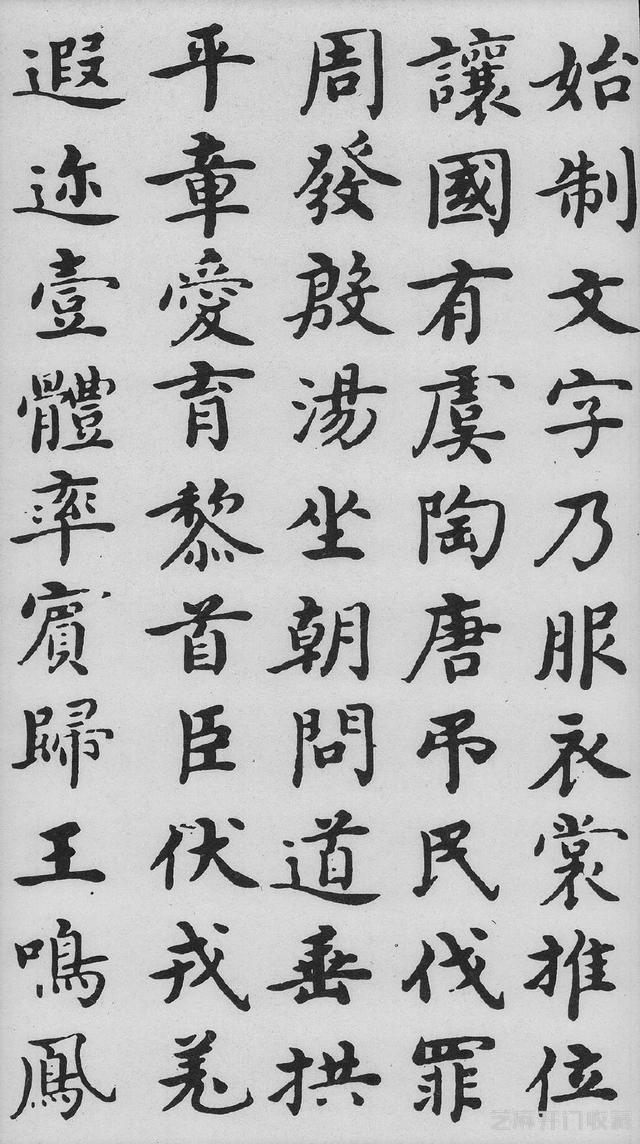 始制文字乃服衣裳推位
讓國有虞陶唐弔民伐罪
周發殷湯坐朝問道垂拱
平章愛育黎首臣伏戎羌
遐迩壹體率賓歸王鳴鳳
艺麻开门收藏